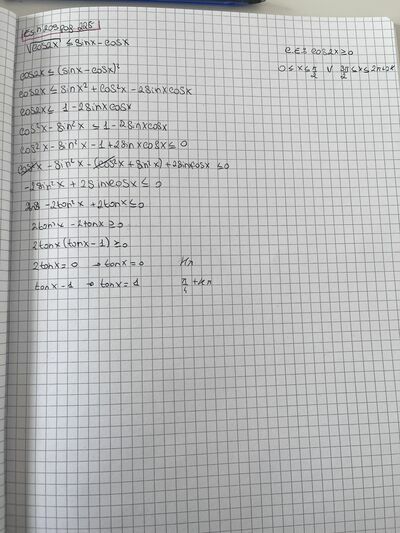 es n°203 pag 225
√cos2x ≤ sinx - cosx
C.E.: cos2x ≥ 0
0 ≤ x ≤ π/2 ∨ 3π/2 ≤ x ≤ 2π+2kπ
cos2x ≤ (sinx - cosx)²
cos2x ≤ sinx² + cos²x - 2sinxcosx
cos2x ≤ 1 - 2sinxcosx
cos²x - sin²x ≤ 1 - 2sinxcosx
cos²x - sin²x - 1 + 2sinxcosx ≤ 0
cos²x - sin²x - (cos²x + sin²x) + 2sinxcosx ≤ 0
-2sin²x + 2sinxcosx ≤ 0
-2tan²x + 2tanx ≤ 0
2tan²x - 2tanx ≥ 0
2tanx (tanx - 1) ≥ 0
2tanx = 0 → tanx = 0 kπ
tanx - 1 → tanx = 1 π/4 + kπ